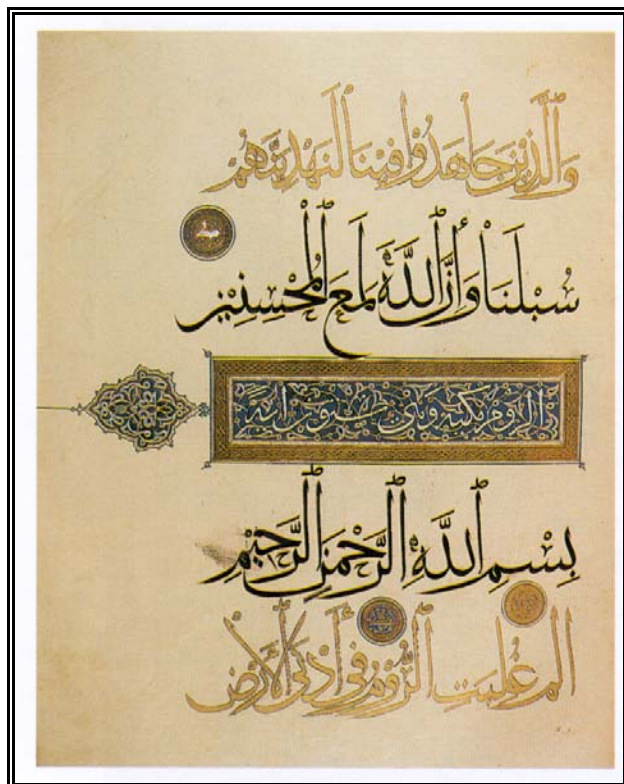 وَالَّذِينَ جَاهَدُوا فِينَا لَنَهْدِيَنَّهُمْ
سُبُلَنَا وَإِنَّ اللَّهَ لَمَعَ الْمُحْسِنِينَ
الروم مكية وهي آية
بِسْمِ اللَّهِ الرَّحْمَنِ الرَّحِيمِ
الم غُلِبَتِ الرُّومُ فِي أَدْنَى الْأَرْضِ